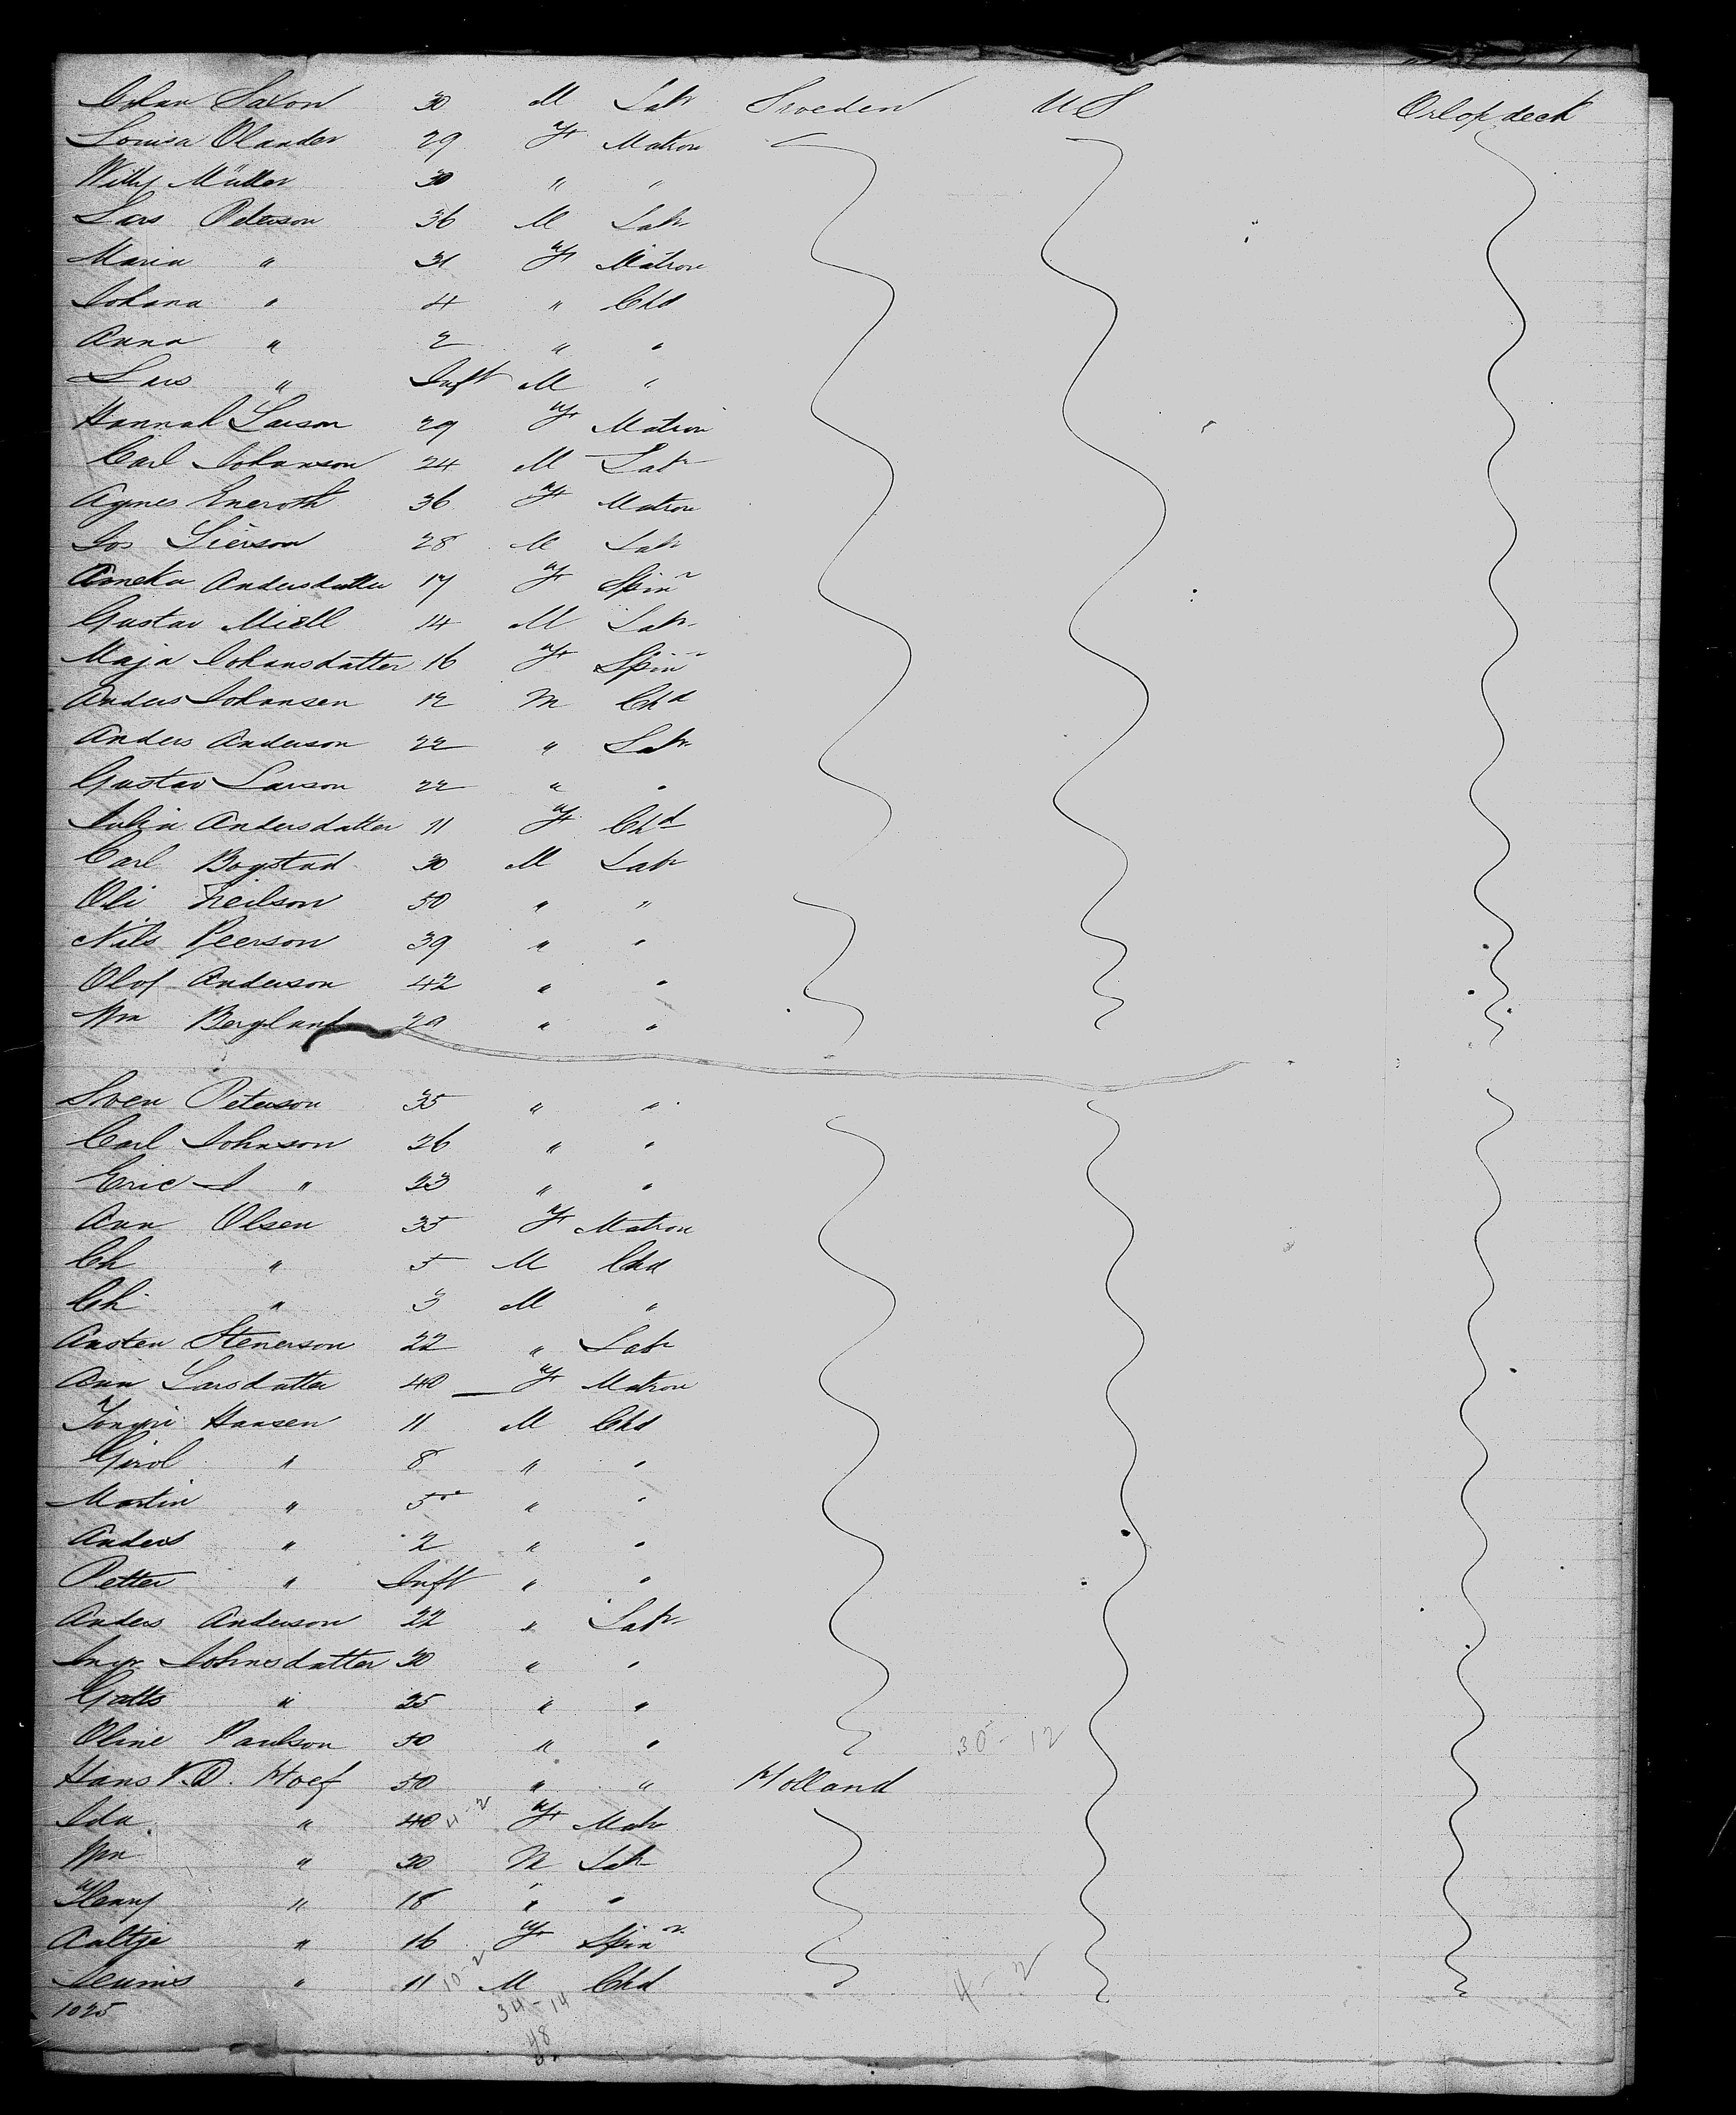 Johan Saxon 30 M Labr Sweden US Orlop deck
Louisa Olander 29 F Matron
Willy Müller 30 " "
Lars Peterson 36 M Labr
Maria " 31 F Matron
Johana " 4 " Chd
Anna " 2 " "
Lars " Inft M "
Hannah Larson 29 F Matron
Carl Johanson 24 M Labr
Agnes Eneroth 36 F Matron
Jos Lierson 28 M Labr
Anneka Andersdatter 17 F Spinr
Gustav Miell 14 M Labr
Maja Johansdatter 16 F Spinr
Anders Johansen 12 M Chd
Anders Anderson 22 " Labr
Gustav Larson 22 " "
Julia Andersdatter 11 F Chd
Carl Bogstad 30 M Labr
Oli Neilson 50 " "
Nils Peerson 39 " "
Olof Anderson 42 " "
Wm Bergland 29 " "
Sven Peterson 35 " "
Carl Johnson 26 " "
Eric J " 23 " "
Ann Olsen 35 F Matron
Ch " 5 M Chd
Ch " 3 M "
Austen Stenerson 22 " Labr
Ann Larsdatter 40 F Matron
Hansen 11 M Chd
" 8 " "
Martin " 5 " "
Anders " 2 " "
Petter " Inft " "
Anders Anderson 22 " Labr
Ingr Johnsdatter 30 " "
" 25 " "
Oline Paulson 50 " " 30-12
Hans V.D. Hoef 50 " " Holland
Ida " 40 11-2 F Matr
Wm " 20 M Labr
Henry " 18 " "
Aaltje " 16 F Spinr
Teunis " 11 10-2 M Chd 4-2
1025 34-14
48